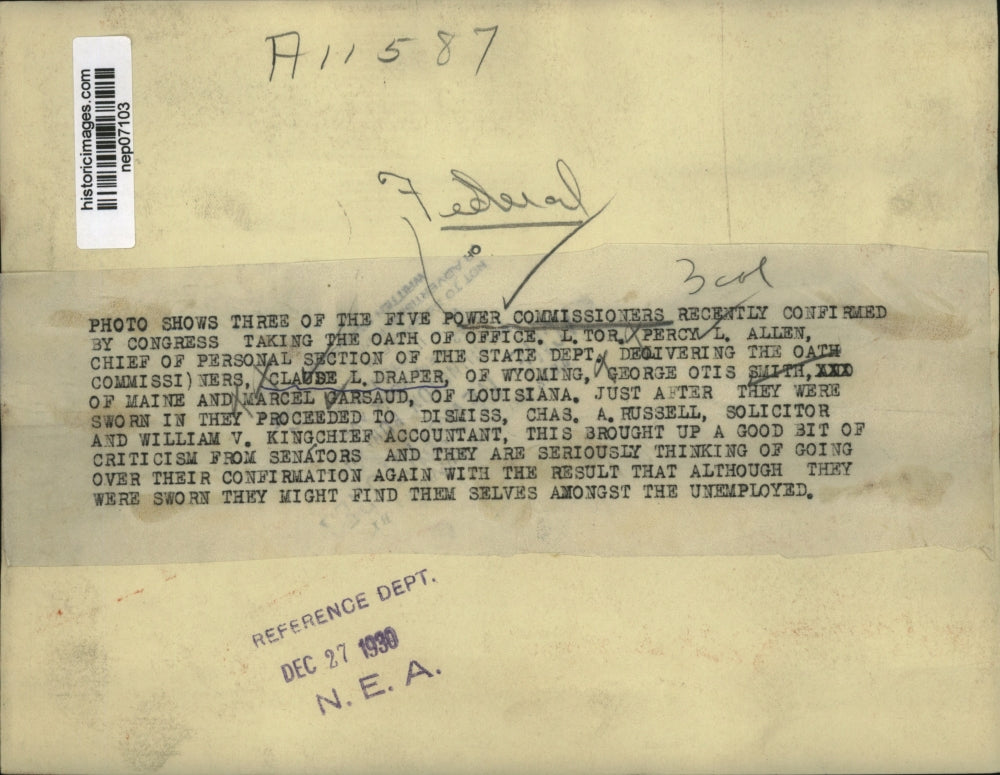 historicimages.com
nep07103
A11587
Federal
3 col
PHOTO SHOWS THREE OF THE FIVE POWER COMMISSIONERS RECENTLY CONFIRMED
BY CONGRESS TAKING THE OATH OF OFFICE. L. TOR. PERCY L. ALLEN,
CHIEF OF PERSONAL SECTION OF THE STATE DEPT. DELIVERING THE OATH
COMMISSI)NERS, CLAUDE L. DRAPER, OF WYOMING, GEORGE OTIS SMITH, XXX
OF MAINE AND MARCEL GARSAUD, OF LOUISIANA. JUST AFTER THEY WERE
SWORN IN THEY PROCEEDED TO DISMISS, CHAS. A. RUSSELL, SOLICITOR
AND WILLIAM V. KINGCHIEF ACCOUNTANT, THIS BROUGHT UP A GOOD BIT OF
CRITICISM FROM SENATORS AND THEY ARE SERIOUSLY THINKING OF GOING
OVER THEIR CONFIRMATION AGAIN WITH THE RESULT THAT ALTHOUGH THEY
WERE SWORN THEY MIGHT FIND THEM SELVES AMONGST THE UNEMPLOYED.
REFERENCE DEPT.
DEC 27 1930
N. E. A.